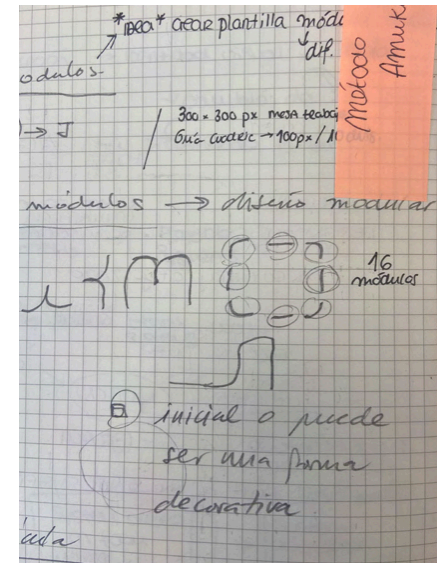 *IDEA* crear plantilla módu
dif.
Método
Amuk
odulos
→ J
300 × 300 px mesa trabaj
100px / 10
módulos → diseño modular
16
módulos
inicial o puede
ser una forma
decorativa
ada